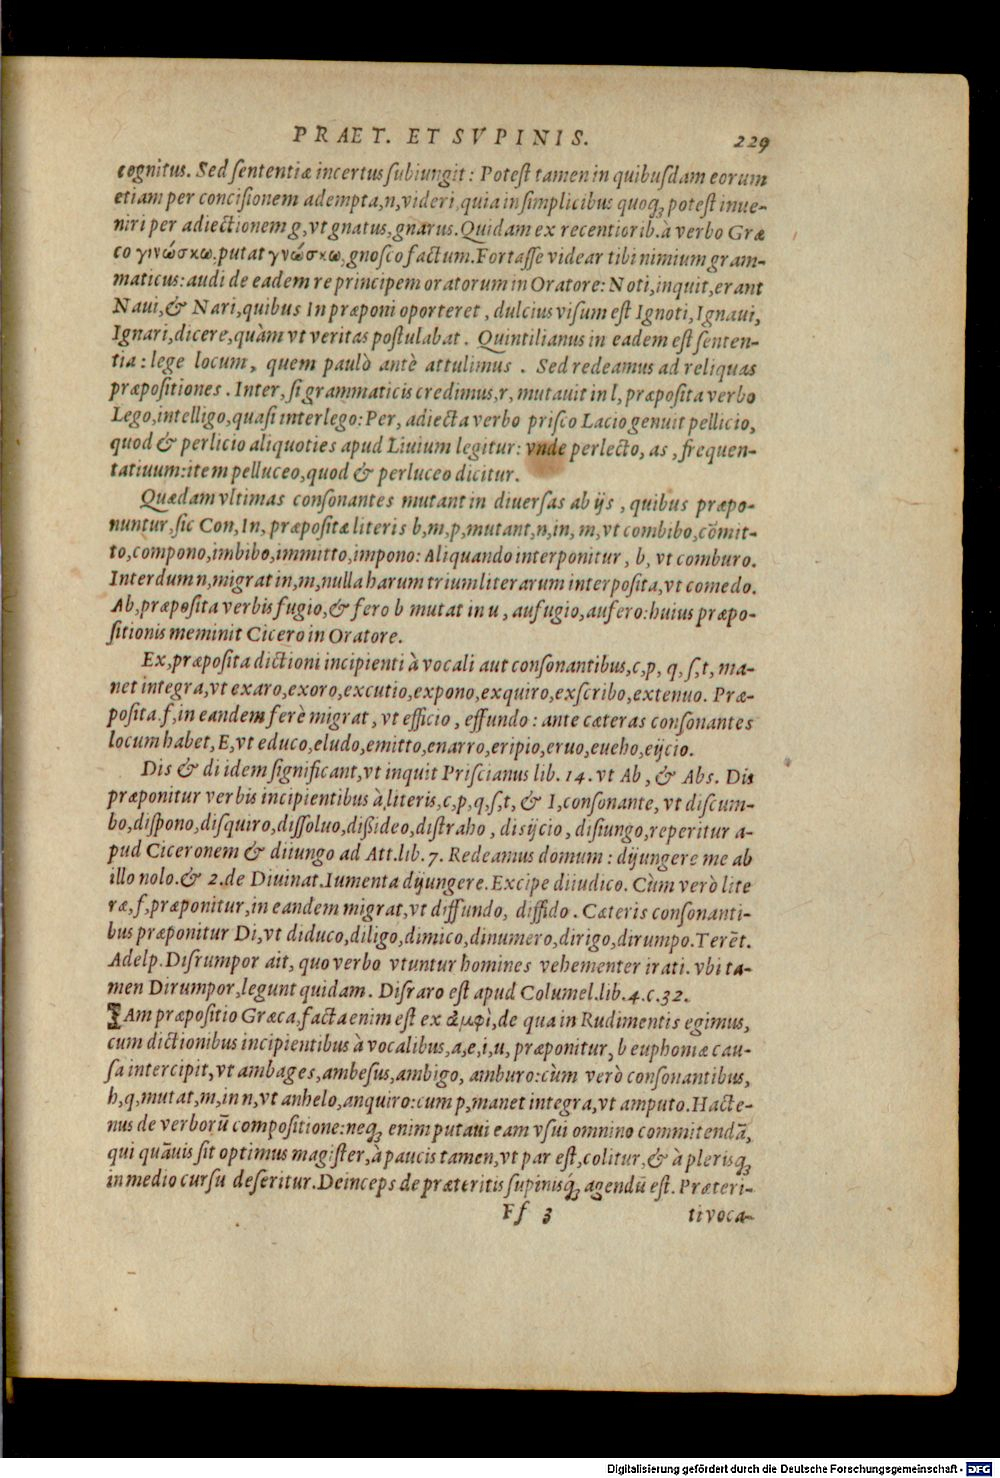 PRAET. ET SVPINIS. 229
cognitus. Sed sententiæ incertus subiungit: Potest tamen in quibusdam eorum
etiam per concisionem adempta, n, videri, quia in simplicibus quoq; potest inue-
niri per adiectionem g, vt gnatus, gnarus. Quidam ex recentiorib. à verbo Græ
co γινώσκω, putat γνώσκω, gnosco factum. Fortasse videar tibi nimium gram-
maticus: audi de eadem re principem oratorum in Oratore: Noti, inquit, erant
Naui, & Nari, quibus In præponi oporteret, dulcius visum est Ignoti, Ignaui,
Ignari, dicere, quàm vt veritas postulabat. Quintilianus in eadem est senten-
tia: lege locum, quem paulò antè attulimus. Sed redeamus ad reliquas
præpositiones. Inter, si grammaticis credimus, r, mutauit in l, præposita verbo
Lego, intelligo, quasi interlego: Per, adiecta verbo prisco Lacio genuit pellicio,
quod & perlicio aliquoties apud Liuium legitur: vnde perlecto, as, frequen-
tatiuum: item pelluceo, quod & perluceo dicitur.
Quædam vltimas consonantes mutant in diuersas ab ijs, quibus præpo-
nuntur, sic Con, In, præpositæ literis b, m, p, mutant, n, in, m, vt combibo, cõmit-
to, compono, imbibo, immitto, impono: Aliquando interponitur, b, vt comburo.
Interdum n, migrat in, m, nulla harum trium literarum interposita, vt comedo.
Ab, præposita verbis fugio, & fero b mutat in u, aufugio, aufero: huius præpo-
sitionis meminit Cicero in Oratore.
Ex, præposita dictioni incipienti à vocali aut consonantibus, c, p, q, s, t, ma-
net integra, vt exaro, exoro, excutio, expono, exquiro, exscribo, extenuo. Præ-
posita f, in eandem ferè migrat, vt efficio, effundo: ante cæteras consonantes
locum habet, E, vt educo, eludo, emitto, enarro, eripio, eruo, eueho, eijcio.
Dis & di idem significant, vt inquit Priscianus lib. 14. vt Ab, & Abs. Dis
præponitur verbis incipientibus à literis, c, p, q, s, t, & I, consonante, vt discum-
bo, dispono, disquiro, dissoluo, dißideo, distraho, disijcio, disiungo, reperitur a-
pud Ciceronem & diiungo ad Att. lib. 7. Redeamus domum: dijungere me ab
illo nolo. & 2. de Diuinat. Iumenta dijungere. Excipe diiudico. Cùm verò lite
ræ, f, præponitur, in eandem migrat, vt diffundo, diffido. Cæteris consonanti-
bus præponitur Di, vt diduco, diligo, dimico, dinumero, dirigo, dirumpo. Terẽt.
Adelp. Disrumpor ait, quo verbo vtuntur homines vehementer irati. vbi ta-
men Dirumpor, legunt quidam. Disraro est apud Columel. lib. 4. c. 32.
IAm præpositio Græca, facta enim est ex ἀμφὶ, de qua in Rudimentis egimus,
cum dictionibus incipientibus à vocalibus, a, e, i, u, præponitur, b euphoniæ cau-
sa intercipit, vt ambages, ambesus, ambigo, amburo: cùm verò consonantibus,
h, q, mutat, m, in n, vt anhelo, anquiro: cum p, manet integra, vt amputo. Hacte-
nus de verborũ compositione: neq; enim putaui eam vsui omnino commitendã,
qui quãuis sit optimus magister, à paucis tamen, vt par est, colitur, & à plerisq;
in medio cursu deseritur. Deinceps de præteritis supinisq́; agendũ est. Præteri-
Ff 3 ti voca-
Digitalisierung gefördert durch die Deutsche Forschungsgemeinschaft - DFG